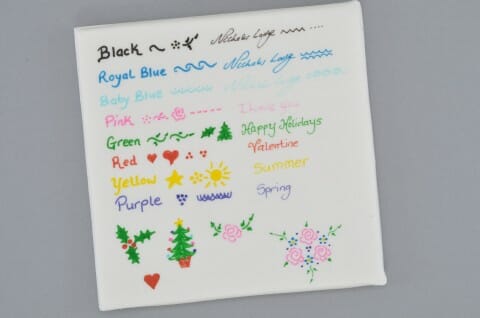 Black Nicholas
Royal Blue Nicholas
Baby Blue
Pink I love you
Green Happy Holidays
Red Valentine
Yellow Summer
Purple Spring